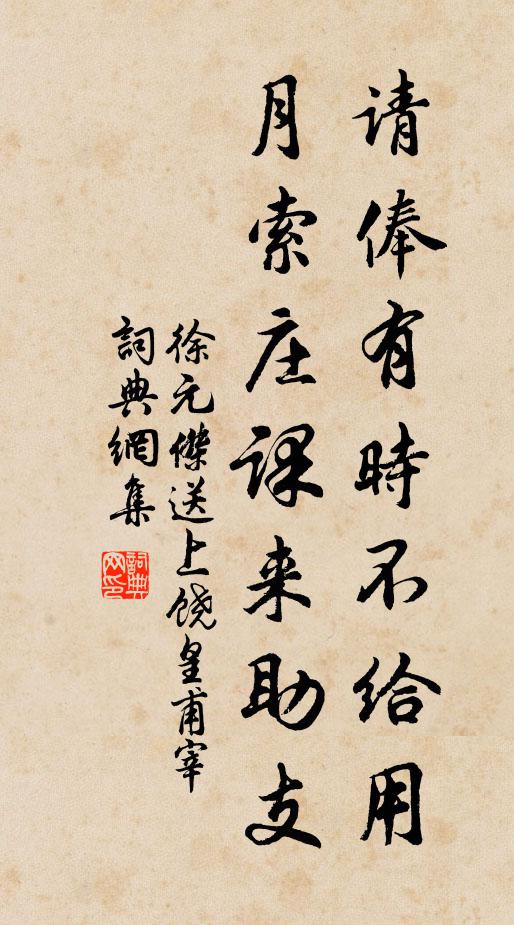 请俸有時不给用
月索庄课来助支
徐元傑送上饶皇甫宰
詞典網集
詞典網印